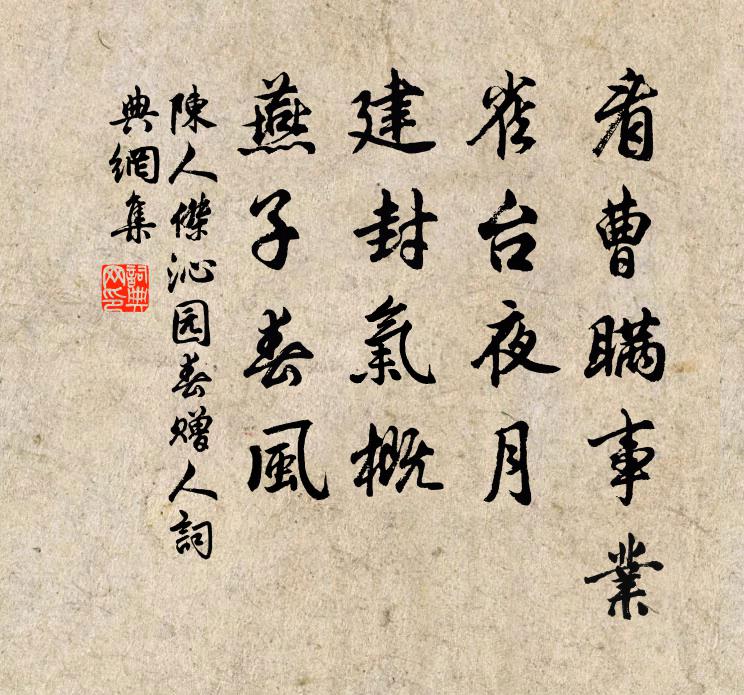 看曹瞞事業
雀台夜月
建封氣概
燕子春風
陳人傑沁园春赠人詞
典網集
詞典
网印